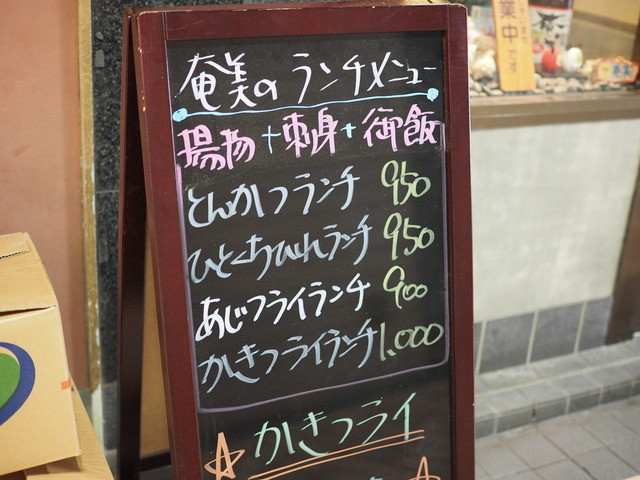 奄美のランチメニュー
揚物+刺身+御飯
とんかつランチ 950
ひとくちひれランチ 950
あじフライランチ 900
かきフライランチ 1,000
☆かきフライ
業中です